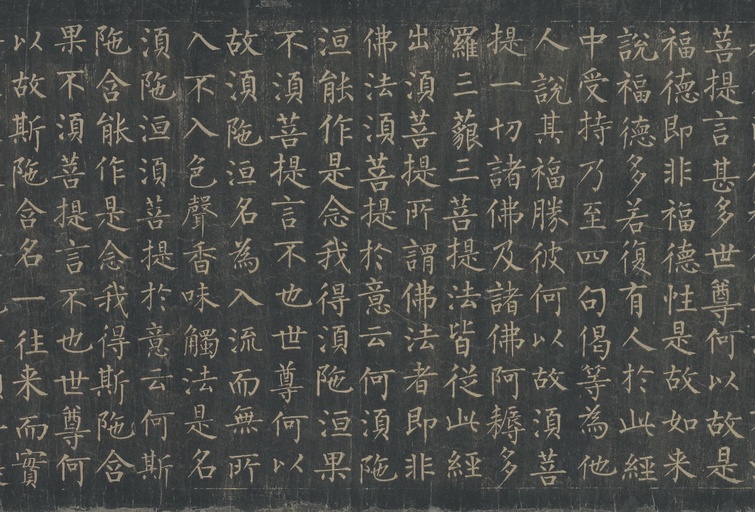 菩提言甚多世尊何以故是
福德即非福德性是故如来
說福德多若復有人於此經
中受持乃至四句偈等為他
人說其福勝彼何以故湏菩
提一切諸佛及諸佛阿耨多
羅三藐三菩提法皆從此經
出湏菩提所謂佛法者即非
佛法湏菩提於意云何湏陁
洹能作是念我得湏陁洹果
不湏菩提言不也世尊何以
故湏陁洹名為入流而無所
入不入色聲香味觸法是名
湏陁洹湏菩提於意云何斯
陁含能作是念我得斯陁含
果不湏菩提言不也世尊何
以故斯陁含名一往来而實